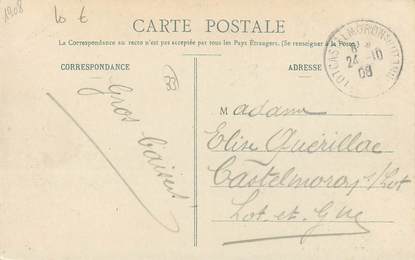 1908
10 €
CARTE POSTALE
La Correspondance au recto n'est pas acceptée par tous les Pays Étrangers. (Se renseigner à la Poste.)
CORRESPONDANCE
ADRESSE
24 -10
08
Gros baisers
Madame
Elise Quérillac
Castelmoron s/Lot
Lot-et-Gne